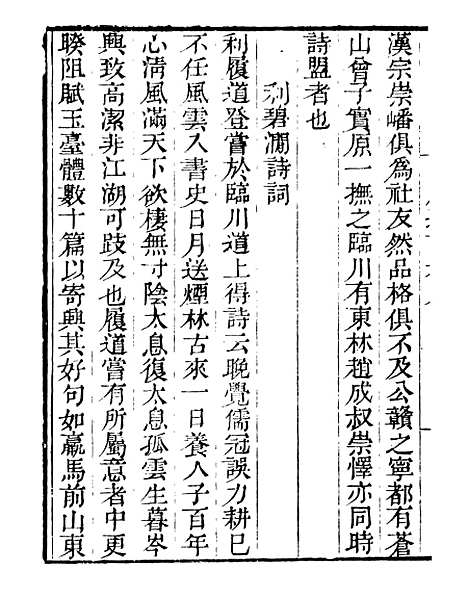 漢宗崇嶓俱爲社友然品格俱不及公贛之寧都有蒼
山曾子實原一撫之臨川有東林趙成叔崇懌亦同時
詩盟者也
利碧澗詩詞
利履道登嘗於臨川道上得詩云晚覺儒冠誤力耕已
不任風雲入書史日月送煙林古來一日養人子百年
心淸風滿天下欲棲無寸陰太息復太息孤雲生暮岑
興致高潔非江湖可跂及也履道嘗有所屬意者中更
睽阻賦玉臺體數十篇以寄興其好句如羸馬前山東